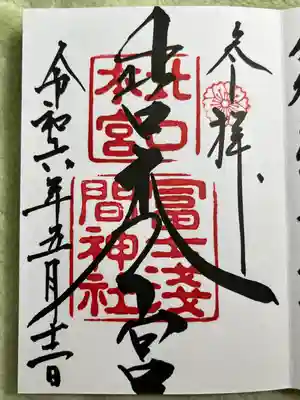 奉拝
北口本宮
北口
本宮
冨士淺
間神社
令和六年五月日